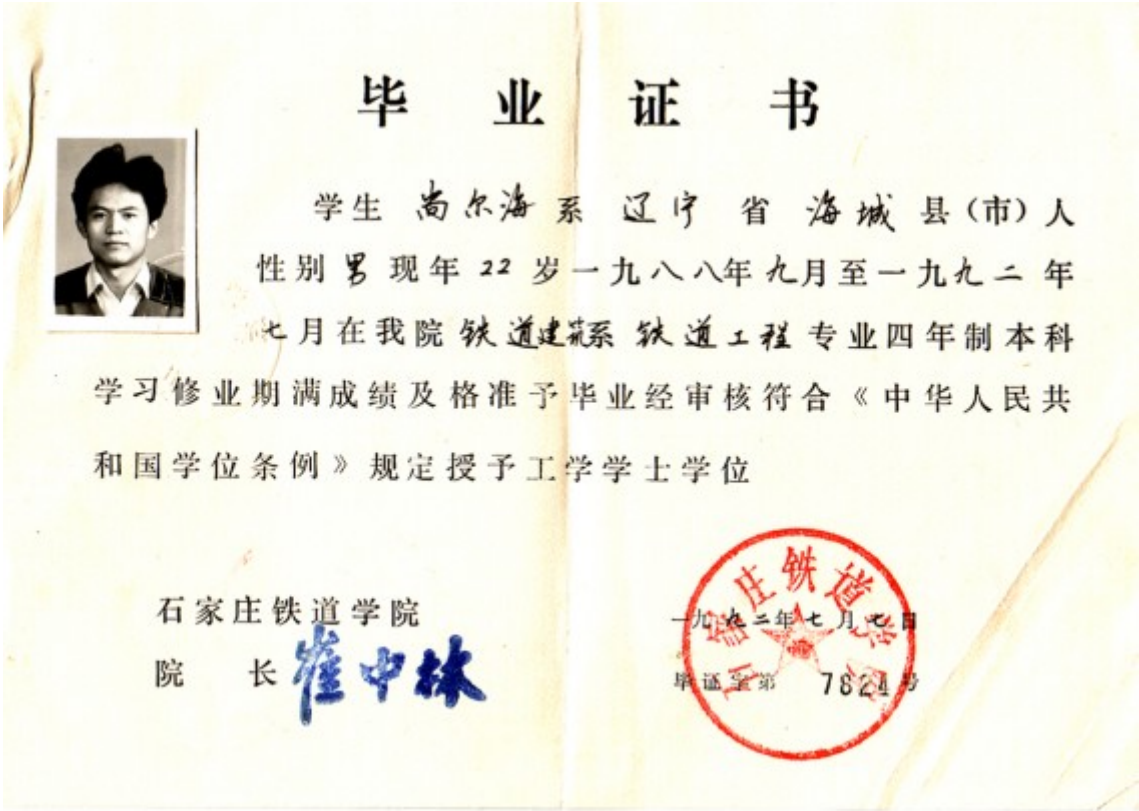 毕业证书
学生 尚尔海 系 辽宁 省 海城 县(市)人
性别 男 现年 22 岁一九八八年九月至一九九二年
七月在我院 铁道建筑系 铁道工程 专业四年制本科
学习修业期满成绩及格准予毕业经审核符合《中华人民共
和国学位条例》规定授予工学学士学位
石家庄铁道学院
院 长 崔中林
一九九二年七月七日
毕证字第 7824 号
石家庄铁道学院